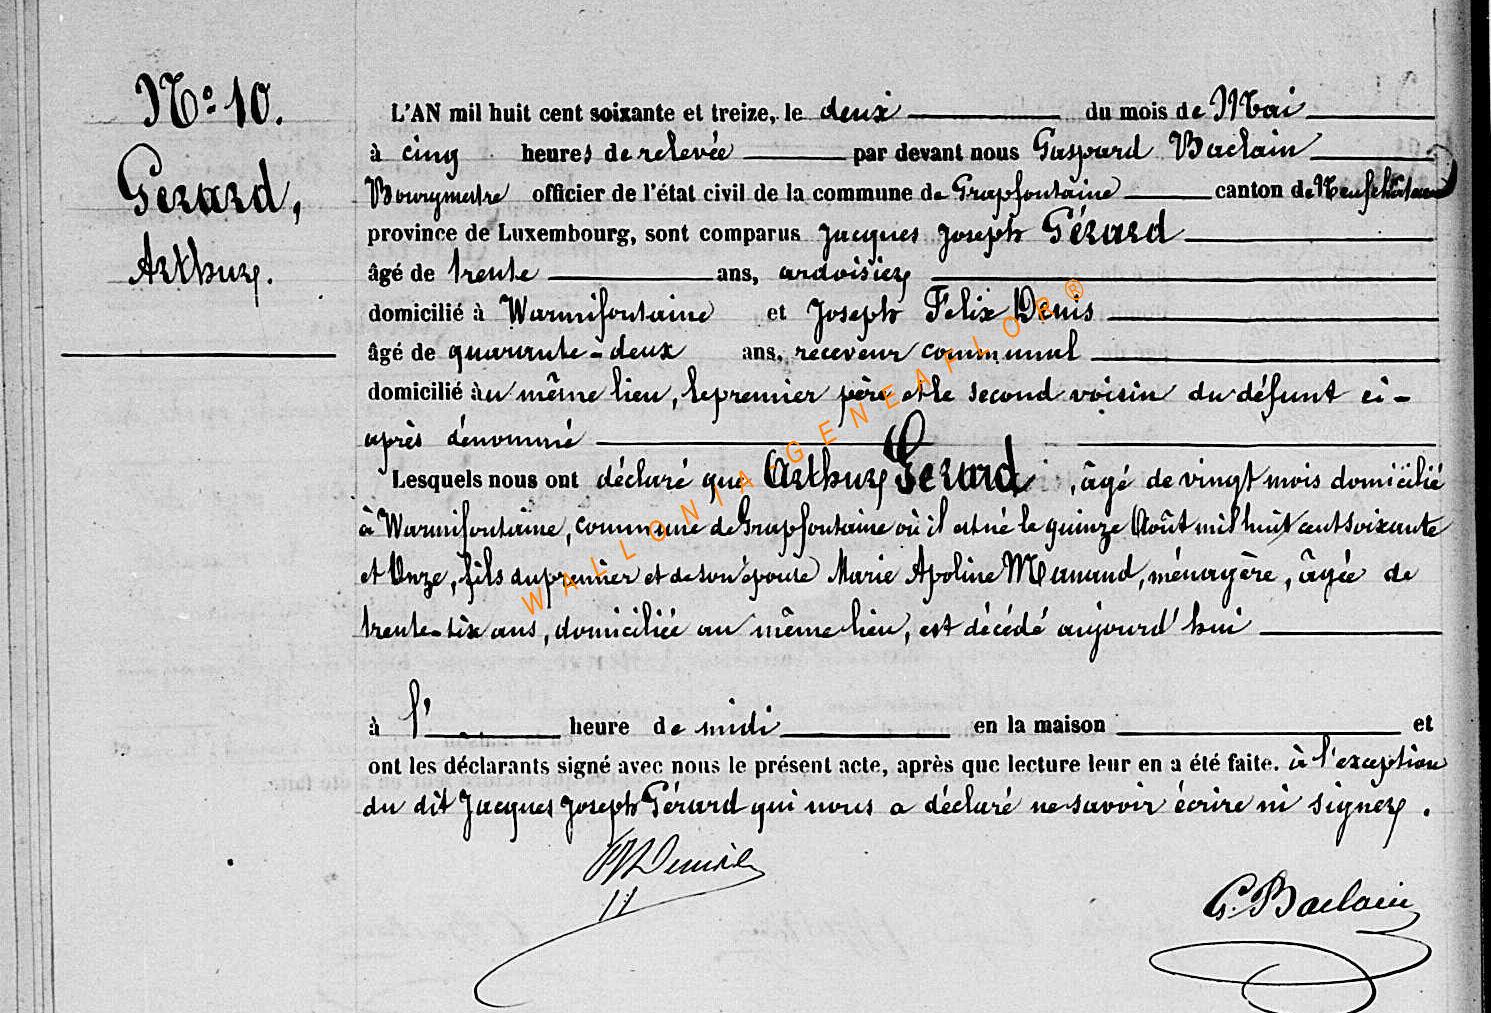 N° 10.
Gérard,
Arthur.
L'AN mil huit cent soixante et treize, le deux du mois de Mai
à cinq heures de relevée par devant nous Gaspard Baclain
Bourgmestre officier de l'état civil de la commune de Grapfontaine canton de Neufchâteau
province de Luxembourg, sont comparus Jacques Joseph Gérard
âgé de trente ans, ardoisier
domicilié à Warmifontaine et Joseph Felix Denis
âgé de quarante-deux ans, receveur communal
domicilié au même lieu, le premier père et le second voisin du défunt ci-
après dénommé
Lesquels nous ont déclaré que Arthur Gérard, âgé de vingt mois domicilié
à Warmifontaine, commune de Grapfontaine où il est né le quinze Août mil huit cent soixante
et Onze, fils du premier et de son épouse Marie Apoline, ménagère, âgée de
trente-six ans, domiciliée au même lieu, est décédé aujourd'hui
à l' heure de midi en la maison et
ont les déclarants signé avec nous le présent acte, après que lecture leur en a été faite. à l'exception
du dit Jacques Joseph Gérard qui nous a déclaré ne savoir écrire ni signer.
G. Baclain
WALLONIA-GENEAFLOR®